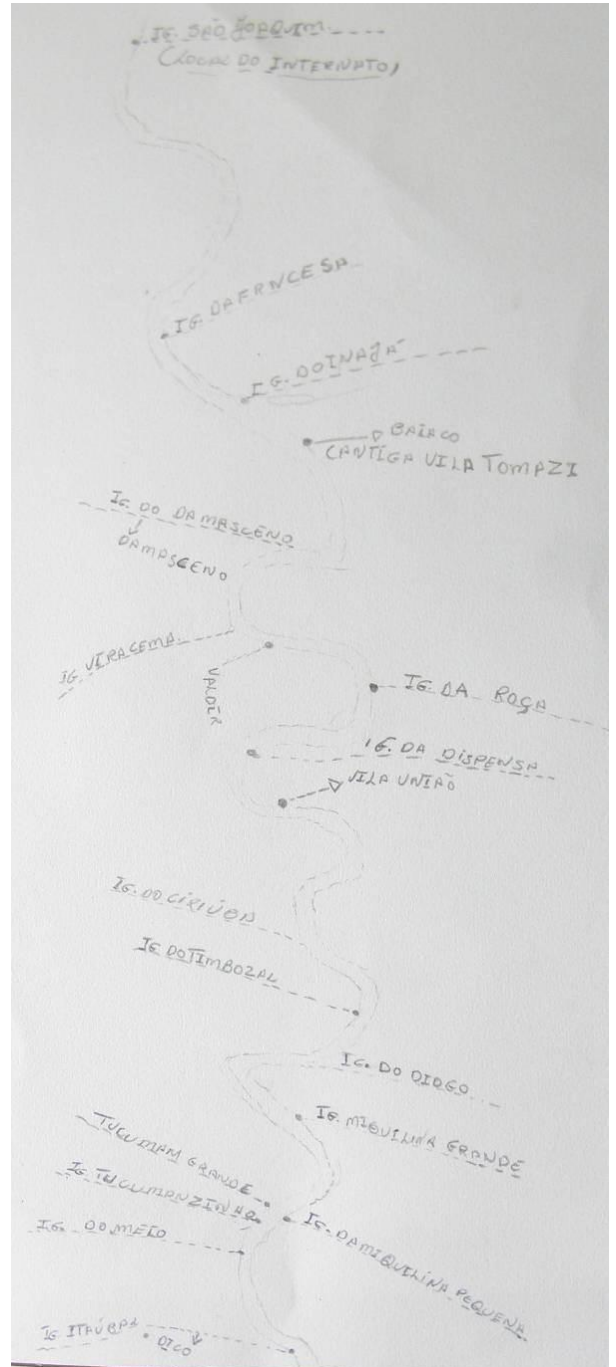 IG. SÃO JOAQUIM
(LOCAL DO INTERNATO)
IG. DA FRNCESA
IG. DO INAJÁ
BAIACO
CANTIGA VILA TOMAZI
IG. DO DAMASCENO
DAMASCENO
IG. VIRACEMA
VALDER
IG. DA ROÇA
IG. DA DISPENSA
VILA UNIÃO
IG. DO CIRIÚBA
IG. DO TIMBOZAL
IG. DO DIOGO
IG. MIQUILINA GRANDE
TUCUMAM GRANDE
IG. TUCUMANZINHO
IG. DAMIQUILINA PEQUENA
IG. DO MEIO
IG. ITAÚBA
DICO